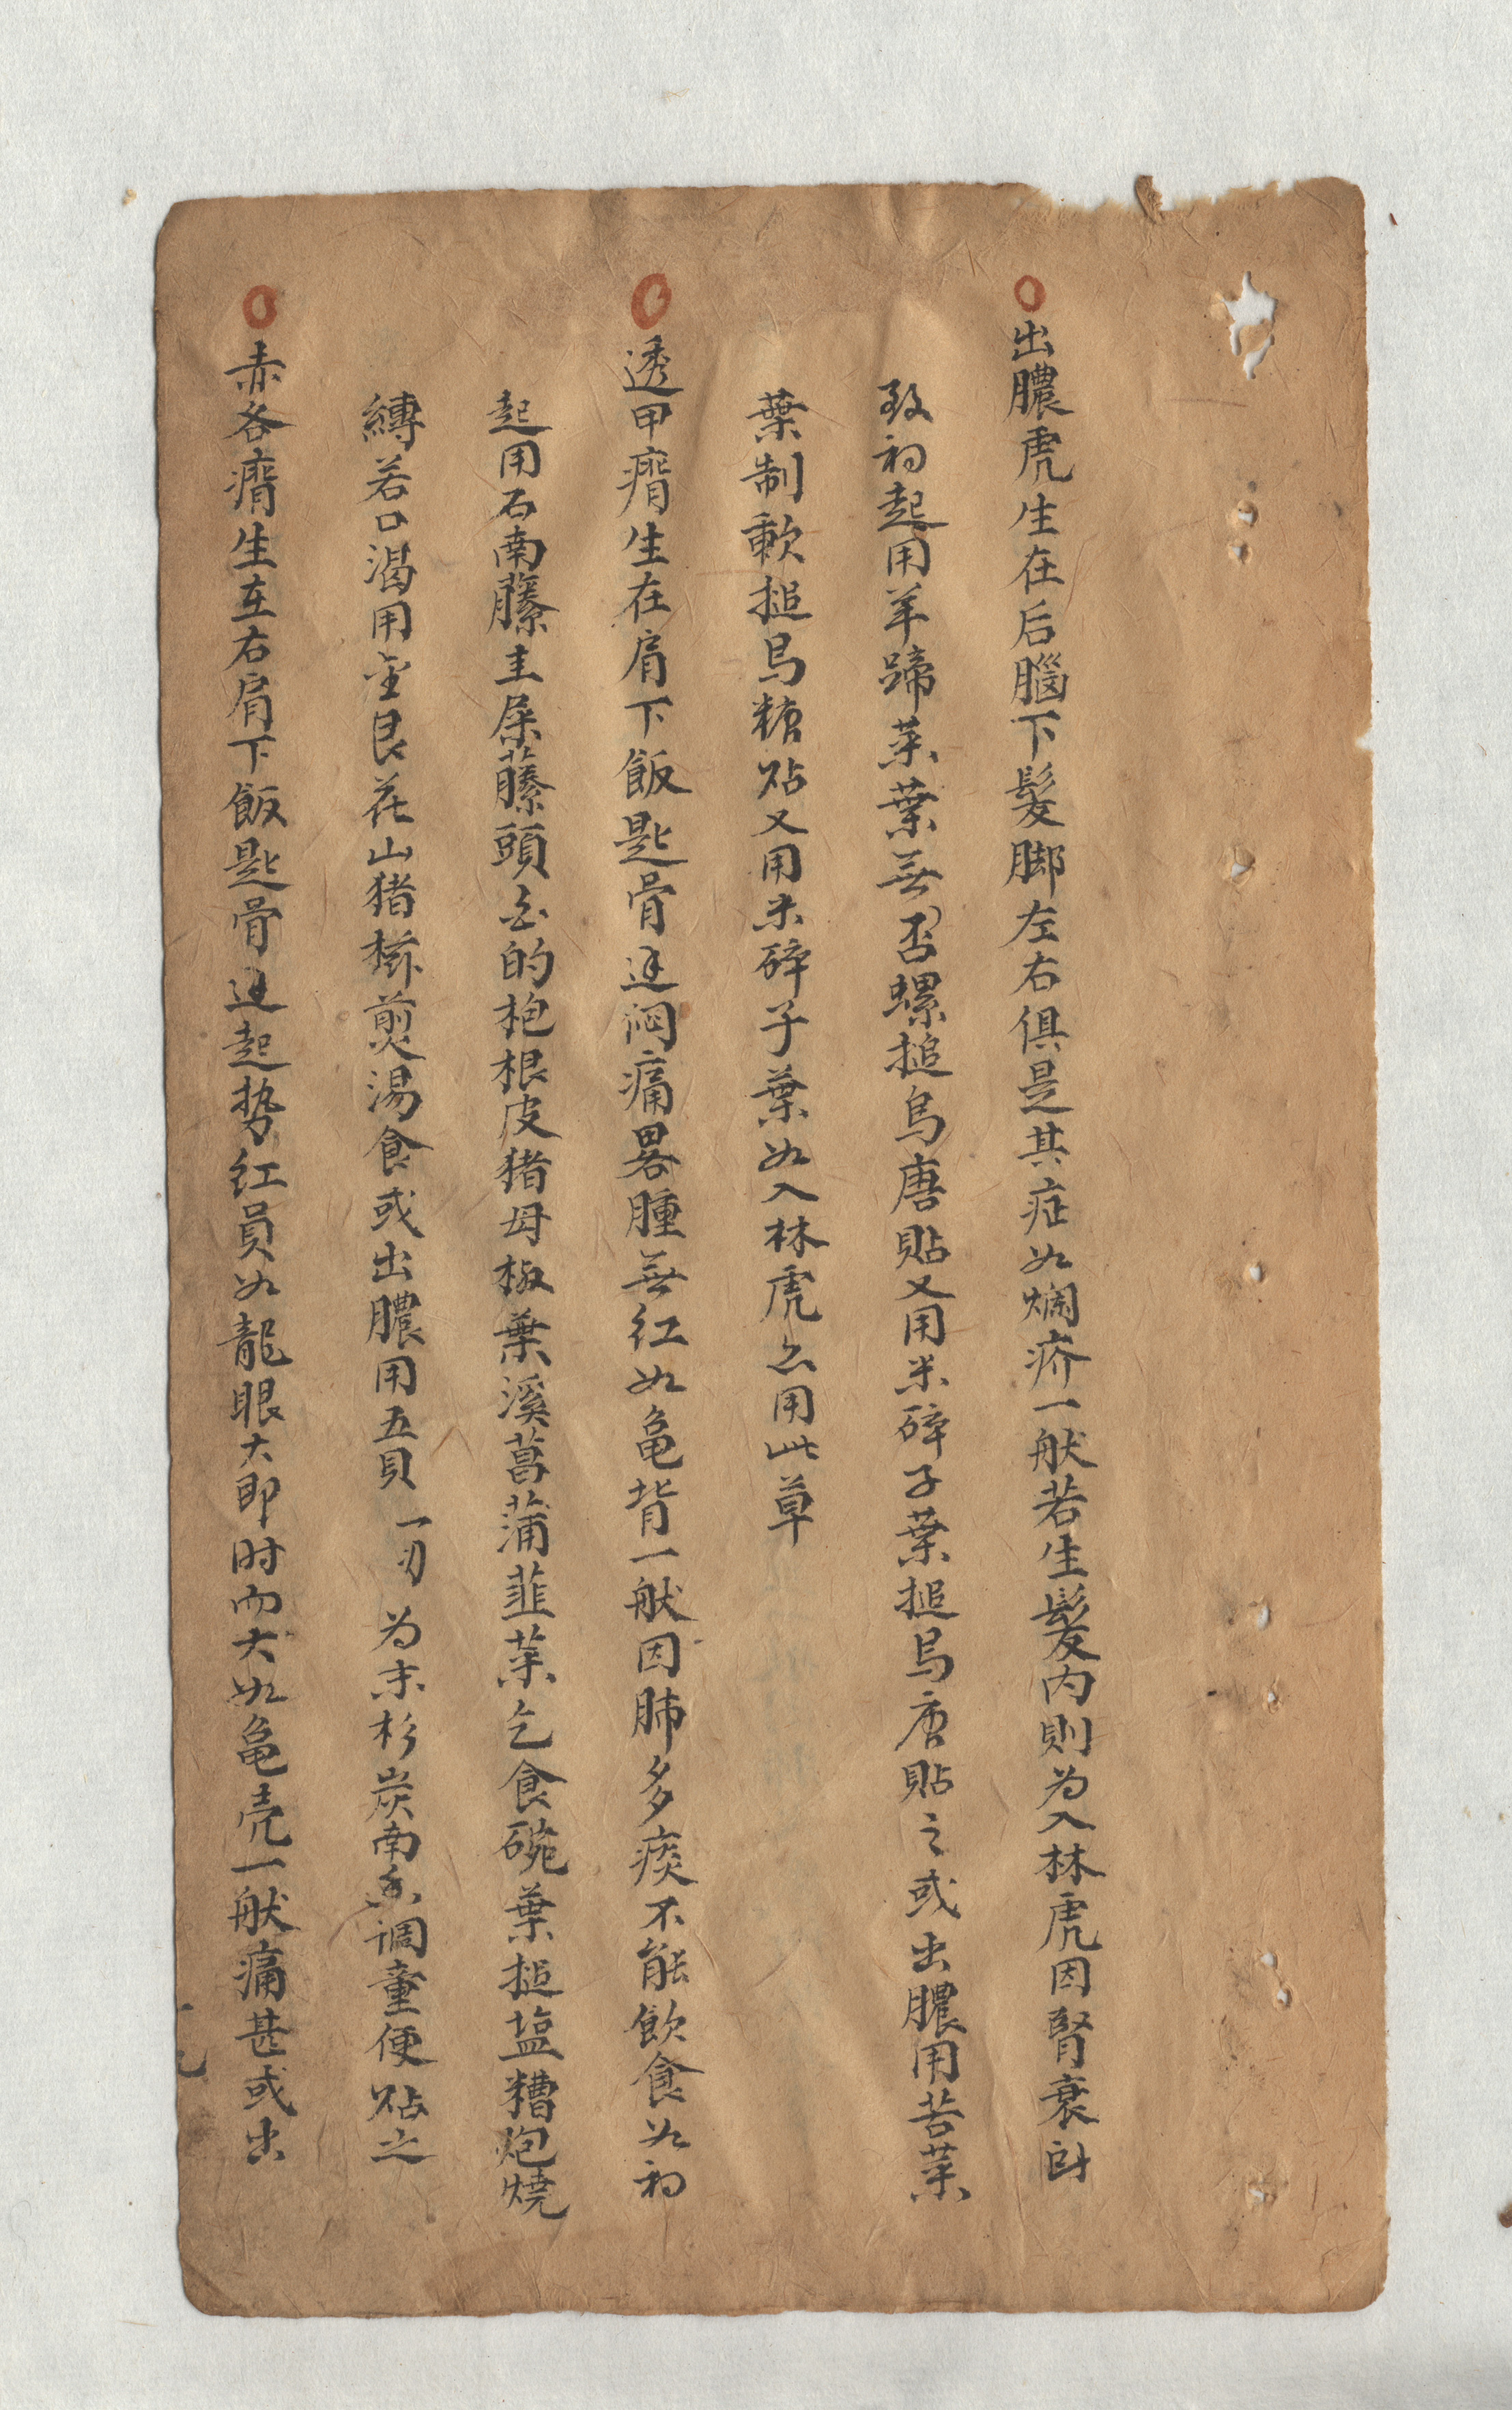 ○出膿虎生在后腦下髮脚左右俱是其症如爛疥一般若生髮内則为入林虎因腎衰所
致初起用羊蹄菜葉無否螺搥烏唐貼又用米碎子葉搥烏唐貼之或出膿用苦菜
葉制軟搥烏糖贴又用米碎子葉如入林虎亦用此草
○透甲癪生在肩下飯匙骨边悶痛畧腫無红如龜背一般因肺多痰不能飲食如初
起用石南藤圭屎藤頭白的枹根皮猪母椒葉溪菖蒲韮菜乞食碗葉搥塩糟炮燒
縛若口渴用金艮花山猪煎湯食或出膿用五貝一刃为末杉炭南香调童便贴之
○赤各癪生在右肩下飯匙骨边起势红員如龍眼大即时而大如龜壳一般痛甚或出